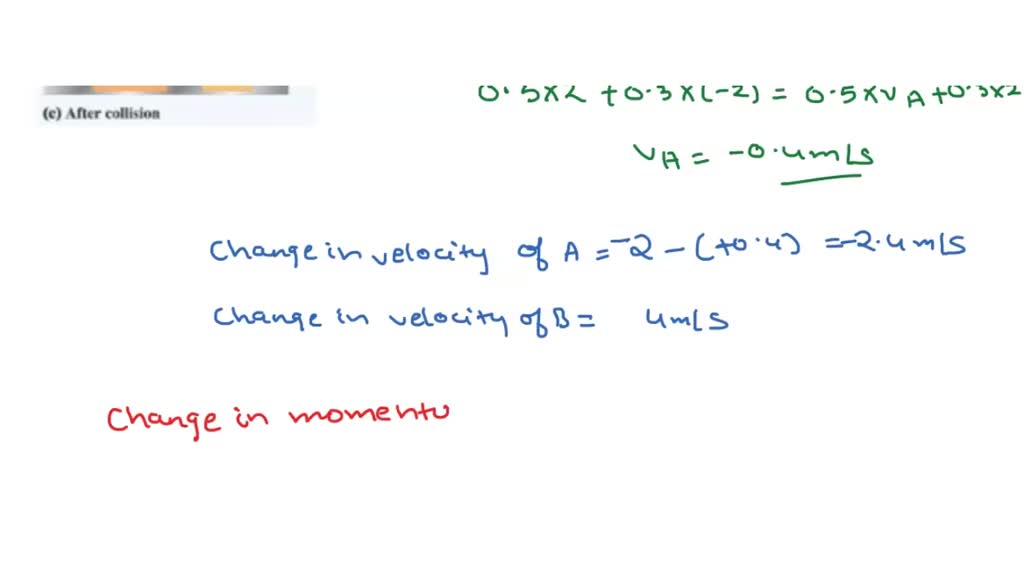 (c) After collision
0.5x2 + 0.3x(-2) = 0.5xVA+0.3x2
VA = -0.4m/s
Change in velocity of A = -2 - (+0.4) = -2.4m/s
Change in velocity of B = 4m/s
Change in momentu